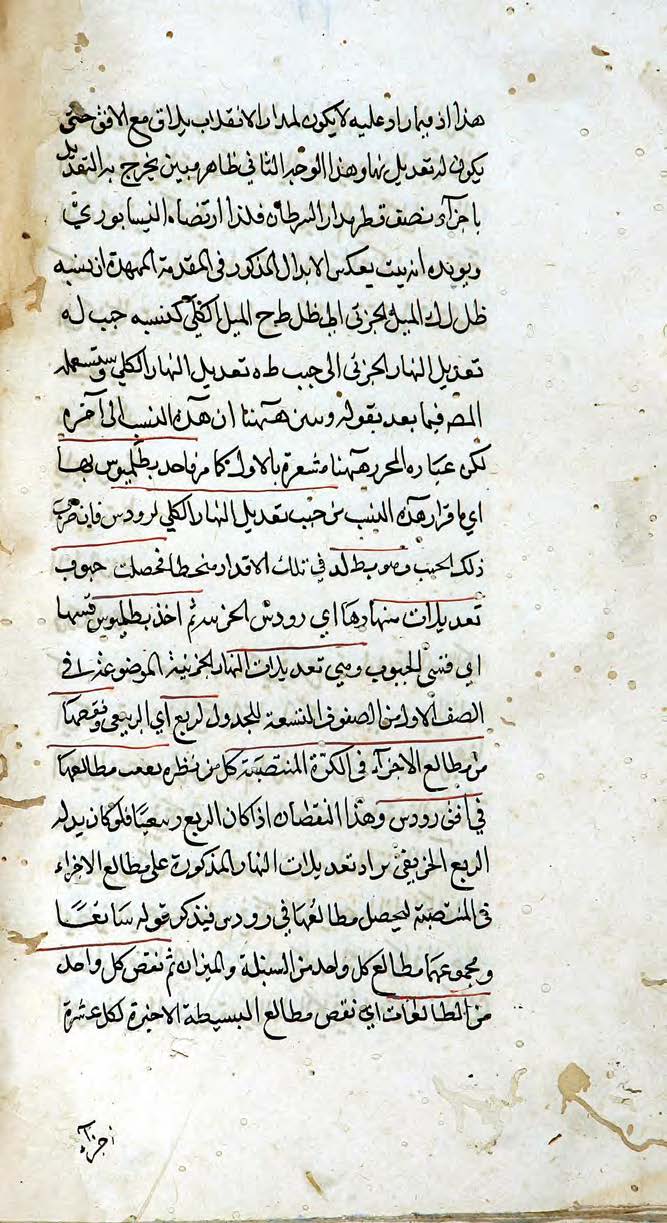 هذا اذ فيما زاد عليه لا يكون لمدار الانقلاب تلاق مع الافق حتى
يكون له تعديل نهار وهذا الوجه الثاني ظاهر مبين يخرج به التعديل
باجزآء نصف قطر مدار السرطان فلذا ارتضاه النيسابوري
ويؤيده انه يثبت بعكس الابدال المذكور في المقدمة الممهدة ان نسبة
ظل الميل الجزئى الى ظل الميل الكلي كنسبة جيب له
تعديل النهار الجزئى الى جيب طه تعديل النهار الكلي وستسمعه
المصه فيما بعد بقوله ومن ههنا ان هذه النسب الى آخره
لكن عباره المحرر ههنا مشعرة بالاول كما مر فاخذ بطلميوس بها
اي باقرار هذه النسب من جيب تعديل النهار الكلي لرودس فان
ذلك الجيب وهو في تلك الاقدار منحطا فحصلت جيوب
تعديلات نهارها اي رودس الجزئية ثم اخذ بطلميوس قسيها
اي قسي الجيوب وهي تعديلات النهار الجزئية الموضوعة في
الصف الاول من الصفوف التسعة للجدول لربع اي الربيعى ونقصها
من مطالع الاجزآء في الكرة المنتصبة كل من نظره بقيت مطالعها
في افق رودس وهذا النقصان اذا كان الربع ربيعيا فلو كان بدله
الربع الخريفي يزاد تعديلات النهار المذكورة على مطالع الاجزاء
في المنتصبة ليحصل مطالعها في رودس فيذكر قوله سابقا
ومجموعهما مطالع كل واحد من السنبلة والميزان ثم نقص كل واحد
من المطالعات اي نقص مطالع البسيطة الاخيرة لكل عشرة
اجزآء